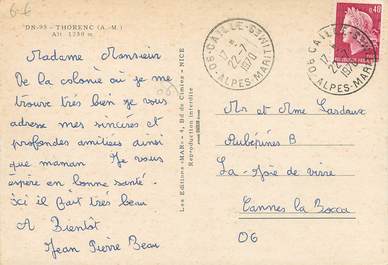 6-6
DN-95 - THORENC (A.-M.)
Alt. 1250 m
Madame Monsieur
De la colonie où je me
trouve très bien je vous
adresse mes sincères et
profondes amitiées ainsi
que maman. Je vous
espère en bonne santé.
Ici il fait très beau
A Bientôt
Jean Pierre Beau
Les Editions «MAR» 4, Bd de Cimiez - NICE
Reproduction interdite
06 CAILLE-ST WILM
22-7
ALPES-MARIT
0,40
06 CAILLE-ST WILM
22-7
ALPES-MARIT
Mr et Mme Sardoux
Aubépines B
La Joie de vivre
Cannes la Bocca
06